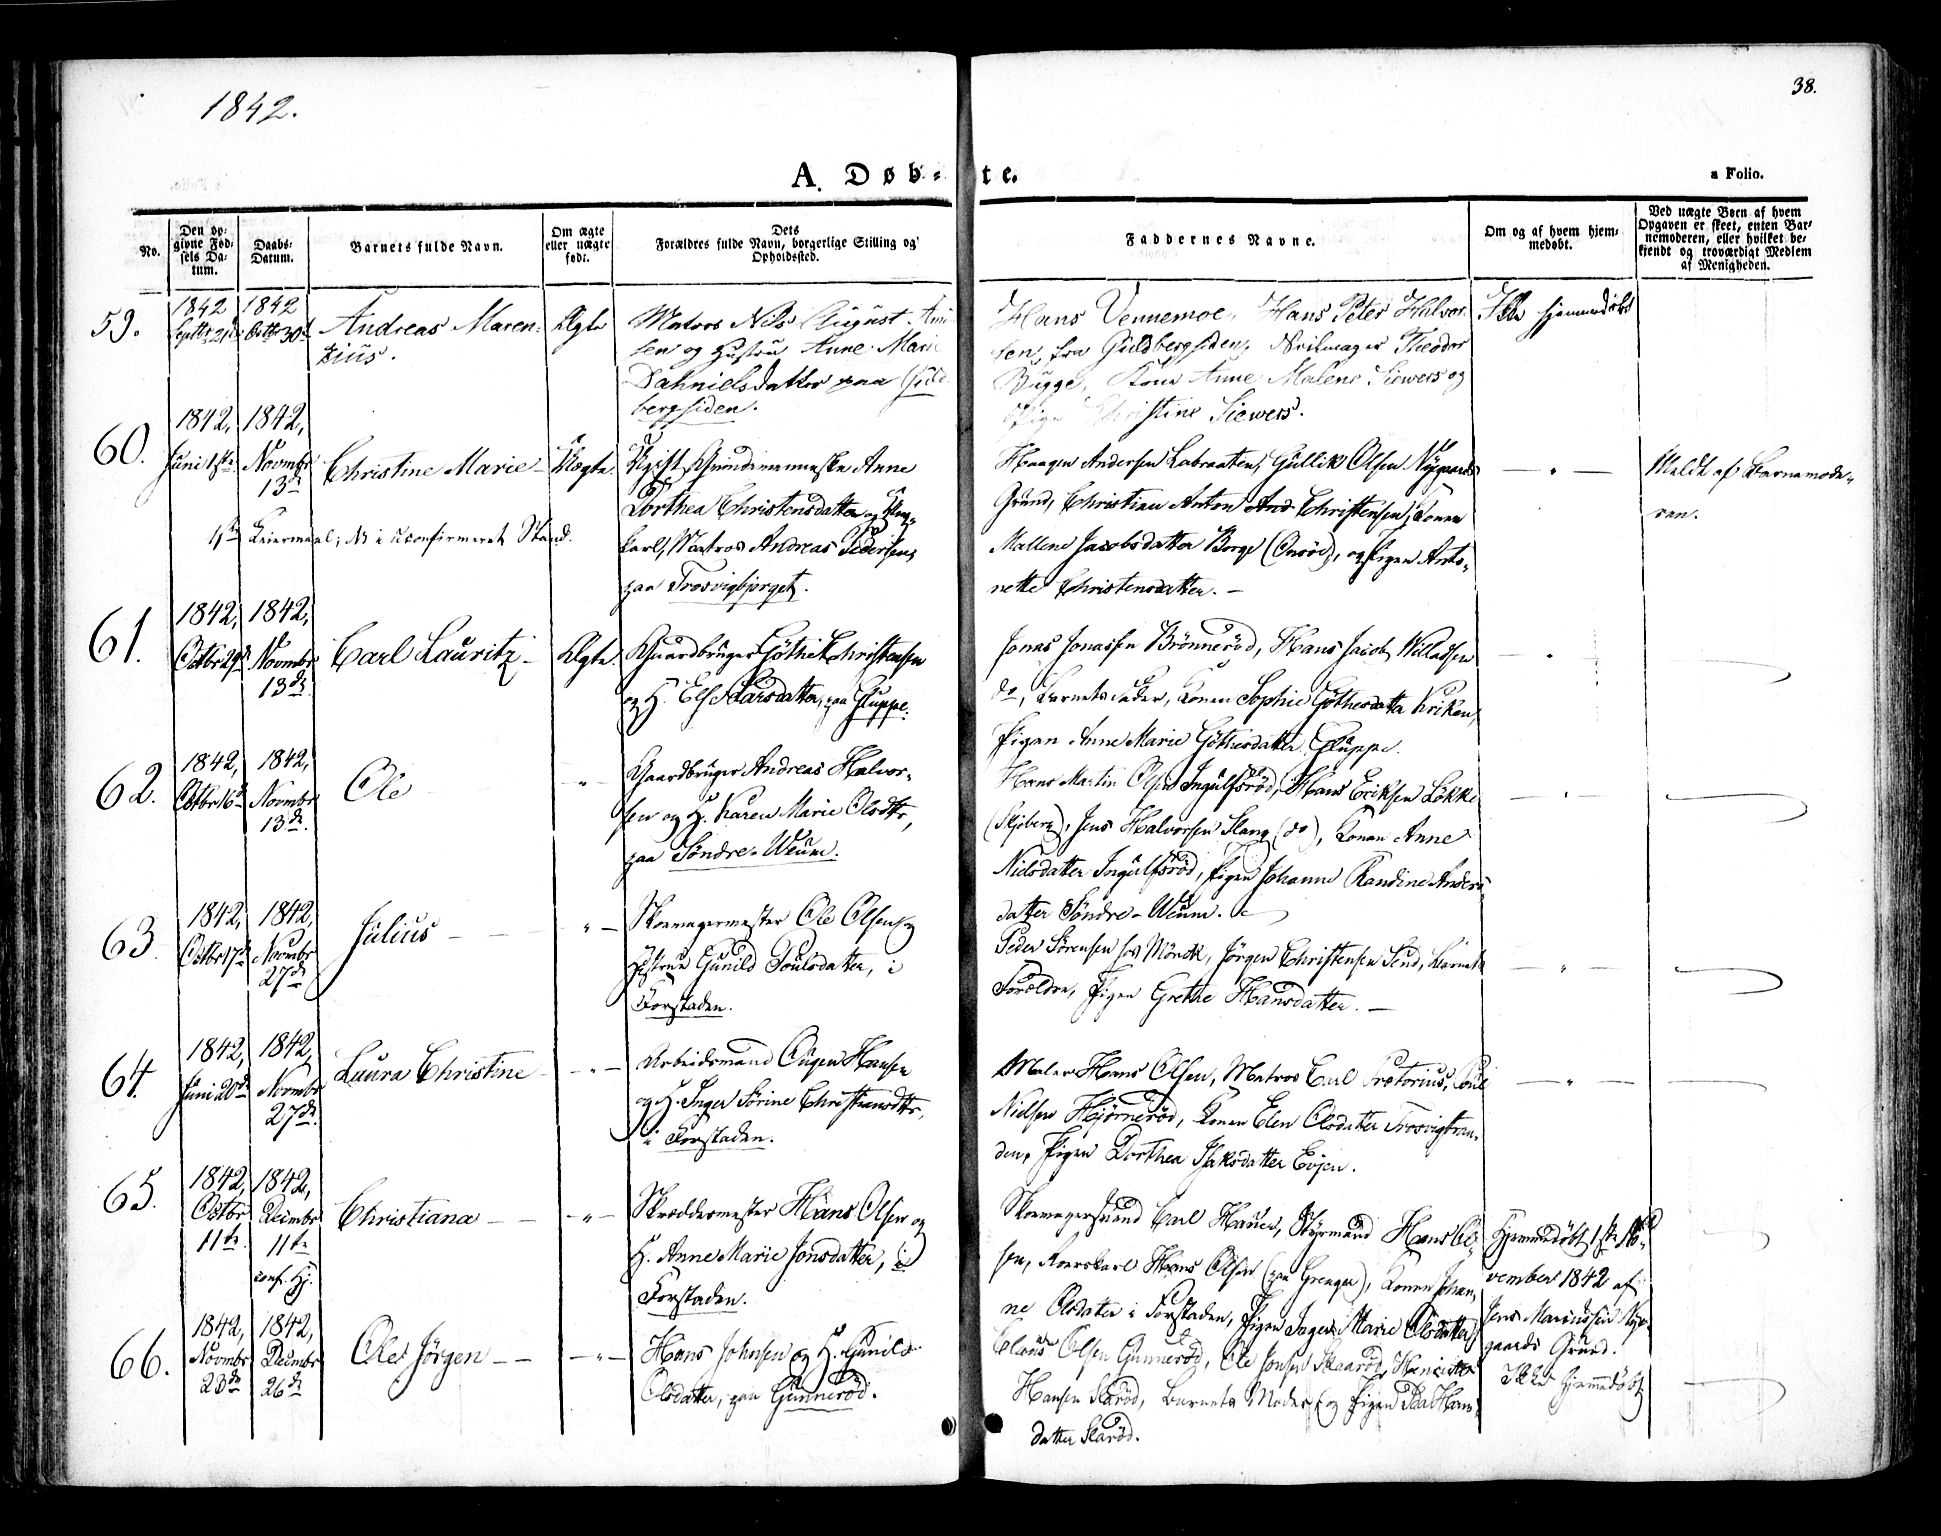 1842.
38.
A. Døb-te.
a Folio.
No.
Den opgivne Fødsels Datum.
Daabs-Datum.
Barnets fulde Navn.
Om ægte eller uægte født.
Dets Forældres fulde Navn, borgerlige Stilling og Opholdssted.
Faddernes Navne.
Om og af hvem hjemmedøbt.
Ved uægte Børn af hvem Opgaven er skeet, enten Barnemoderen, eller hvilket bekjendt og troværdigt Medlem af Menigheden.
59.
1842
Septbr 21de
1842
Octbr 30te
Andreas Maren-
zius.
Ægte
Matros Nils August
sen og Hustru Anne Marie
Dahnielsdatter paa Guld
bergsiden.
Hans Vennemoe, Hans Peter Halvor-
sen, fra Guldbergsiden, Theodor
Bugge, Kone Anne Malene Siewers og
Pige Christine Siewers.
Ikke hjemmedøbt
60.
1842,
Juni 1ste
1842,
Novmbr
13de
Christine Marie -
Uægte.
Ugift Anne
Dorthea Christensdatter og Ung-
karl, Matros Andreas Pedersen,
paa Trosvigbjerget.
1ste Leiermaal; NB i uconfirmeret Stand.
Haagen Andersen Labraaten, Gullik Olsen Nygaards
Grund, Christian Anton Christensen, Konen
Mallene Jacobsdatter Borge (Onsöe), og Pigen Anto-
nette Christensdatter. -
- " -
Meldt af Barnemode-
ren.
61.
1842,
Octbr 29de
1842,
Novmbr
13de.
Carl Lauritz -
Ægte.
Gaardbruger Göthe Christensen
og H. Else Larsdatter, paa Gluppe.
Jonas Jonassen Brönneröd, Hans Jacob Willadsen
do, Barnets Fader, Konen Sophie Göthesdatter Viiken,
Pigen Anne Marie Göthesdatter Gluppe.
- " -
62.
1842,
Octbr 16de
1842,
Novmbr
13de.
Ole
"
Gaardbruger Andreas Halvor-
sen og H. Karen Marie Olsdtr,
paa Söndre-Weum.
Hans Martin Olsen Ingulfsröd, Hans Eriksen Løkke
(Skjeberg), Jens Halvorsen Slang (do), Konen Anne
Nielsdatter Ingulfsröd, Pigen Johanne Randine Anders-
datter Söndre-Weum.
- " -
63.
1842,
Octbr 17de
1842,
Novmbr
27de
Julius
- " -
Skomagermester Ole Olsen og
Hustrue Gunild Poulsdatter, i
Forstaden.
Peder Sörensen hos Mönck, Jörgen Christensen Lund, Barnets
Forældre, Pigen Grethe Hansdatter. -
- " -
64.
1842,
Juni 20de
1842,
Novmbr
27de.
Laura Christine
- " -
Arbeidsmand Ougen Hansen
og H. Inger Sörine Christiansdtr,
i Forstaden.
Maler Hans Olsen, Matros Carl Prætorius, Poul
Nielsen Hjörneröd, Konen Elen Olsdatter Trosvigstran-
den, Pigen Dorthea Isaksdatter Evjen.
- " -
65.
1842,
Octbr
11te.
1842,
Decmbr
11te
conf. Hj.
Christiana -
- " -
Skræddermester Hans Olsen og
H. Anne Marie Jonsdatter, i
Forstaden.
Skomagersvend Carl Hauer, Styrmand Hans Ol-
sen, Hans Olsen (paa Grenger), Konen Johan-
ne Olsdatter i Forstaden, Pigen Inger Marie Olsdatter
Hjemmedöbt 1ste No-
vember 1842 af
Jens Mariussen Ny-
gaards Grund.
66.
1842,
Novmbr
23de
1842,
Decmbr
26de
Ole Jörgen - -
- " -
Hans Johnsen og H. Gunild
Olsdatter, paa Gunneröd.
Claus Olsen Gunneröd, Ole Jonsen Skaaröd,
Hansen Skaröd, Barnets Moder, og Pigen Hans-
datter Skaröd.
Ikke hjemmedöbt